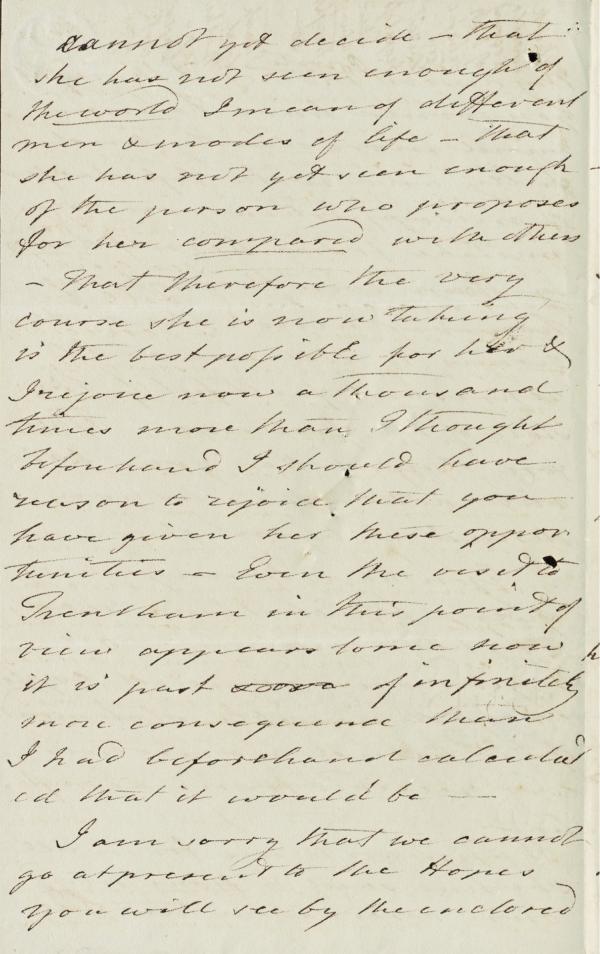 cannot yet decide – that
she has not seen enough of
the world I mean of different
men & modes of life – that
she has not yet seen enough –
of the person who proposes
for her compared with others
– that therefore the very
course she is now taking
is the best possible for her &
I rejoice now a thousand
times more than I thought
beforehand I should have
reason to rejoice that you
have given her these oppor
tunities – Even the visit to
Trentham in this point of
view appears to me now
it is past of infinitely
more consequence than
I had beforehand calculat
ed that it would be —
I am sorry that we cannot
go at present to the Hopes
you will see by the enclosed